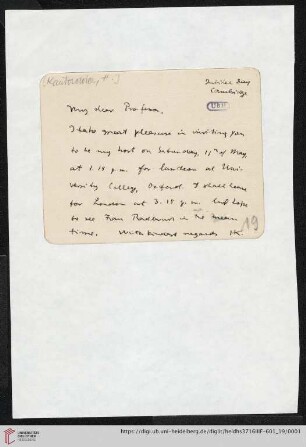 [Kantorowicz, H.]
Jubilee Day
Cambridge
UBH
My dear Professor,
I take great pleasure in inviting you
to be my host on Saturday, 11th of May,
at 1.15 p.m. for luncheon at Uni-
versity College, Oxford. I shall leave
for London at 3.15 p.m. but hope
to see Frau Radbruch in the mean
time. With kindest regards HK.
19
UNIVERSITÄTS-
BIBLIOTHEK
HEIDELBERG
https://digi.ub.uni-heidelberg.de/diglit/heidhs3716IIIF-601_19/0001